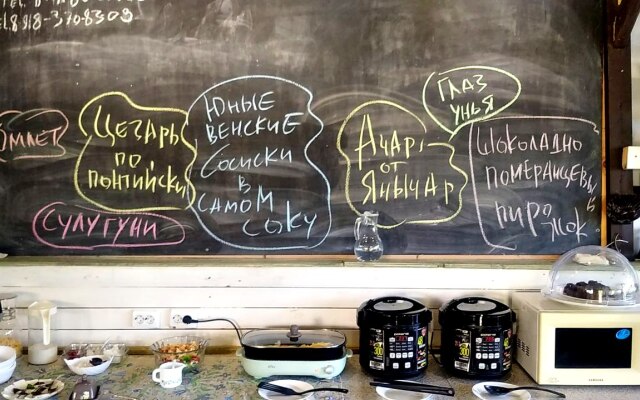 8918-3708309
ОМЛЕТ
ЦЕЗАРЬ
ПО
ПОНТИЙСКИ
СУЛУГУНИ
ЮНЫЕ
ВЕНСКИЕ
СОСИСКИ
В
САМОМ
СОКУ
АЧАР
ОТ
ЯНЫЧАР
ГЛАЗ
УНЬЯ
ШОКОЛАДНО
ПОМЕРАНЦЕВЫЙ
ПИРОЖОК